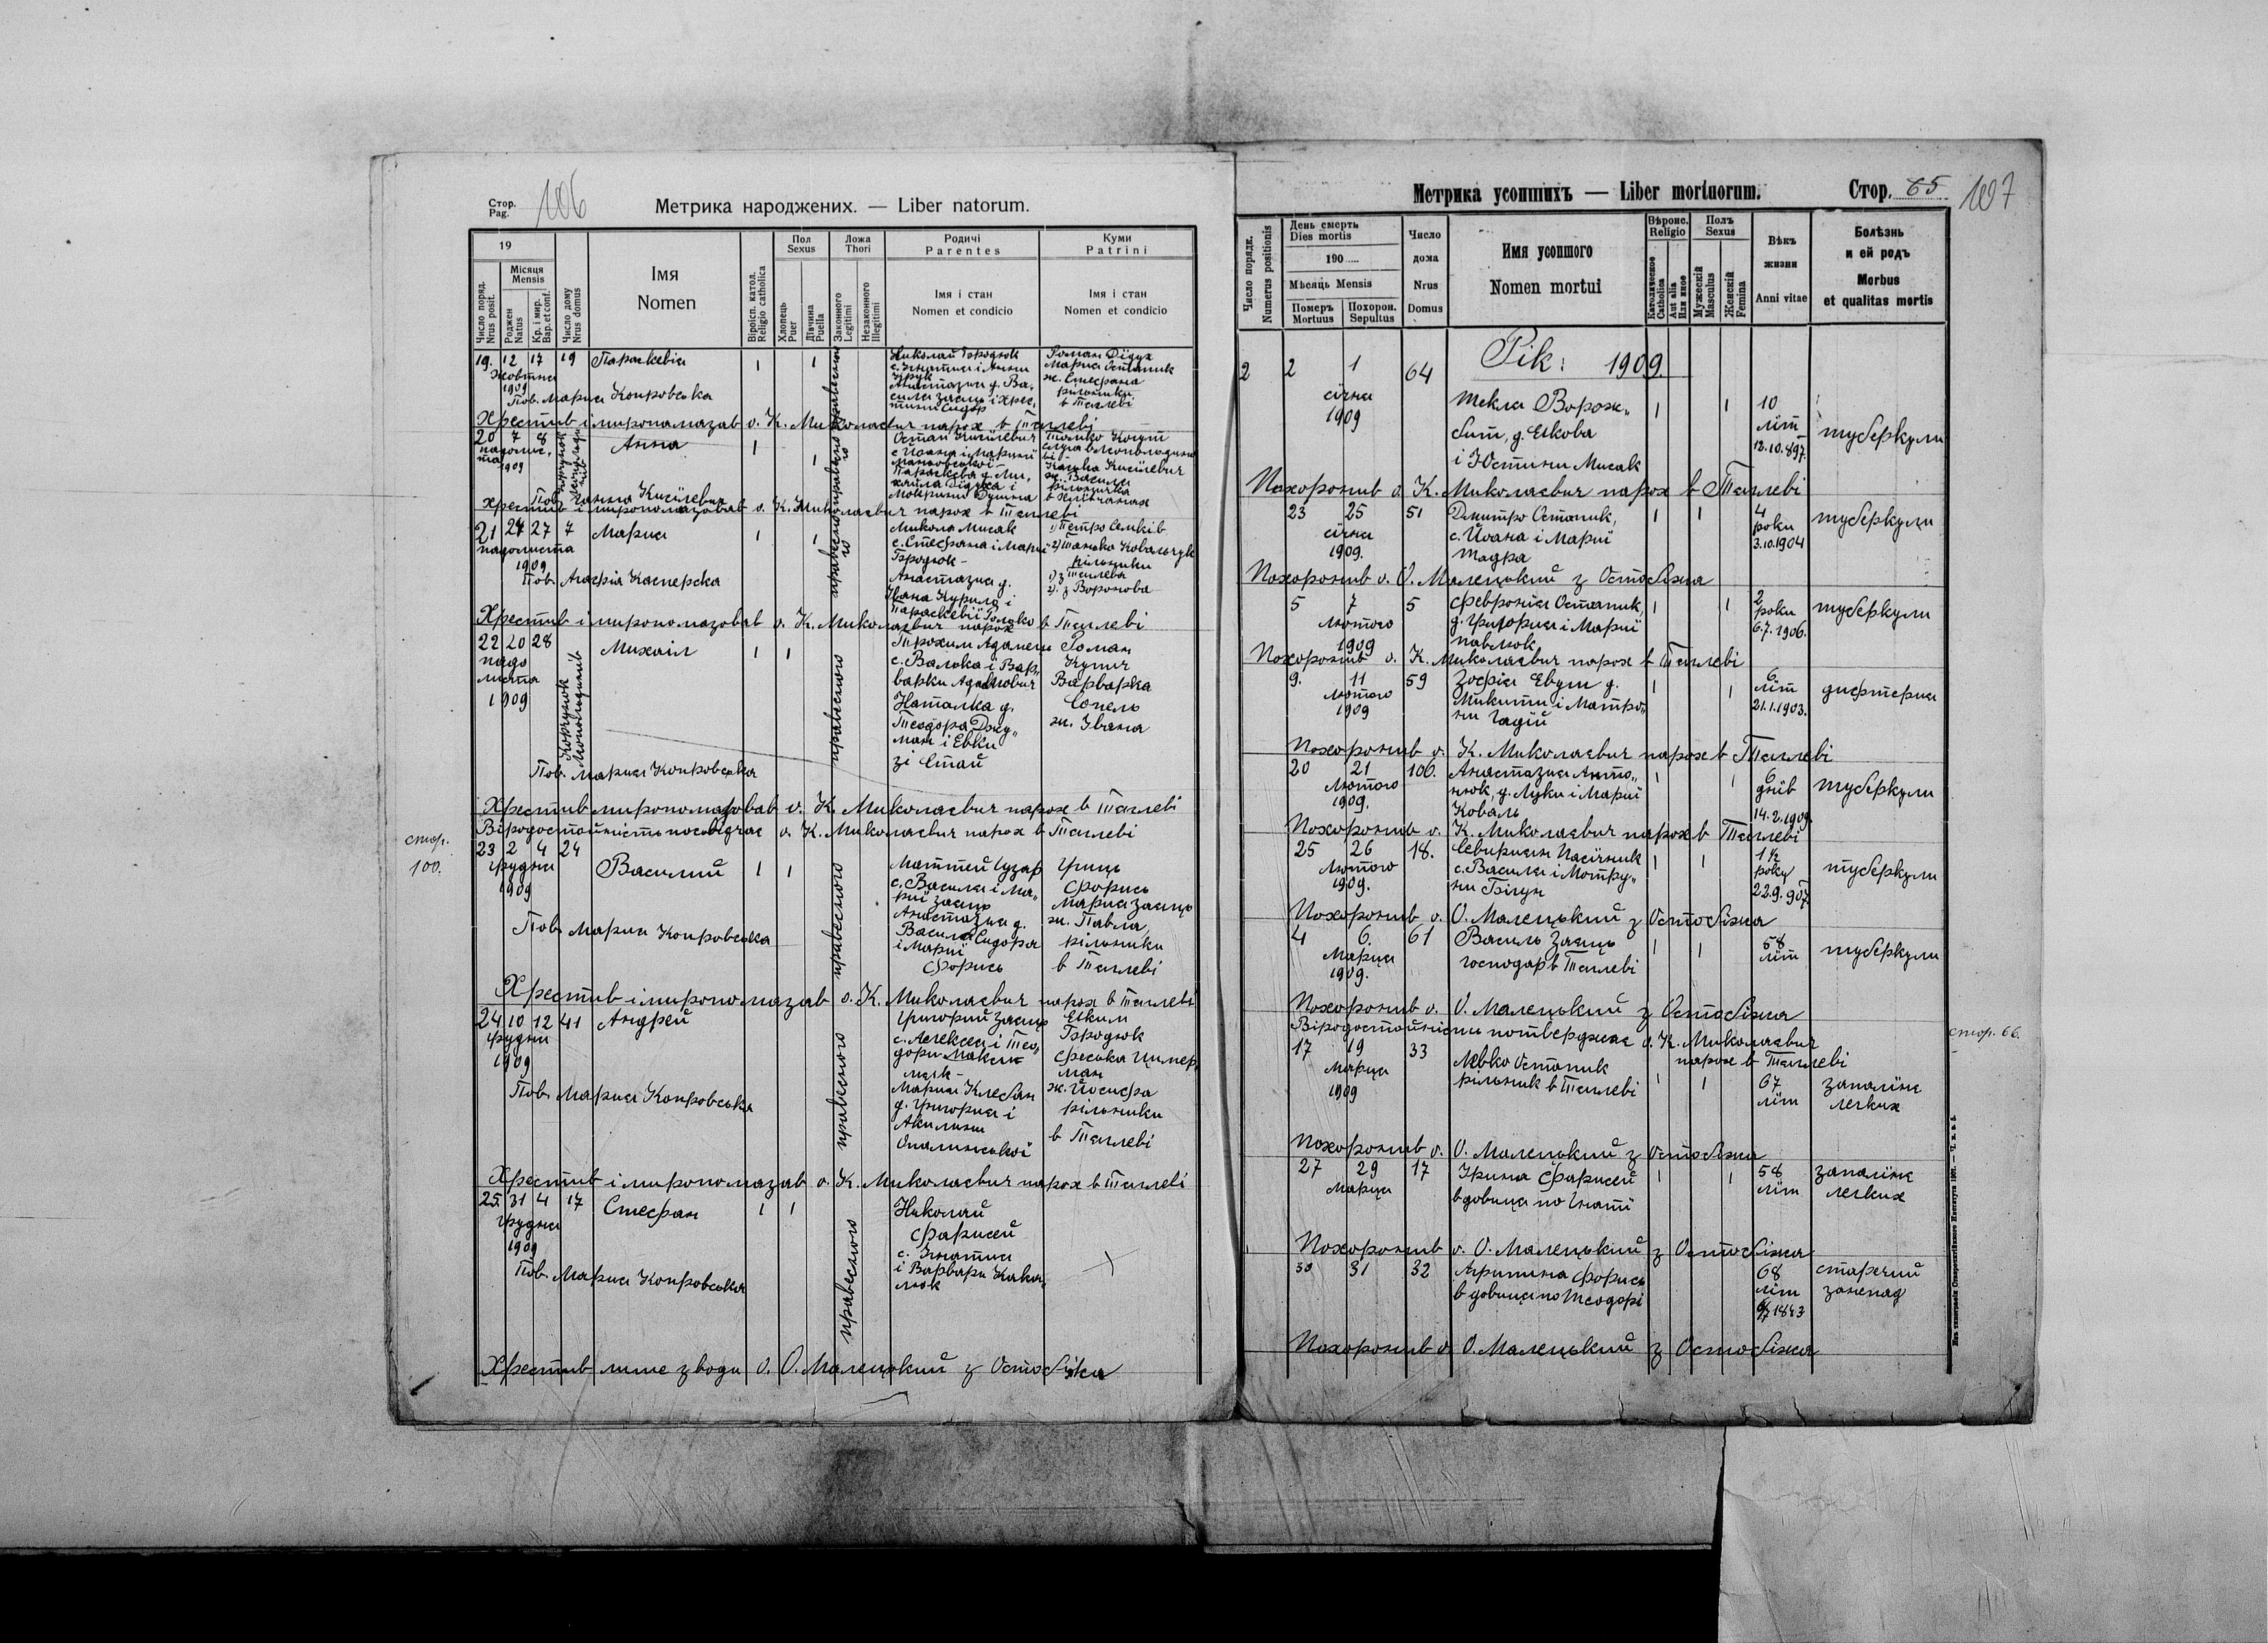 Стор. Pag. 106
Метрика народжених. — Liber natorum.
19
Число поряд. Nrus posit.
Місяця Mensis
Роджен Natus
Кр. і мир. Bap. et conf.
Число дому Nrus domus
Імя Nomen
Віроісп. катол. Religio catholica
Пол Sexus
Хлопець Puer
Дївчина Puella
Ложа Thori
Законного Legitimi
Незаконного Illegitimi
Родичі Parentes
Імя і стан Nomen et condicio
Куми Patrini
Імя і стан Nomen et condicio
19. 12 17 19 Параскевія 1 1
Жовтня
1909
Николай Бродюк
с. Ігнатия і Анни
Анастазия д. Ва„
сила Заєць і Хрес„
тини Сидор
Роман Дїдух
Мария Остапик
ж. Стефана
рільники
в Тяглеві
Пов. Мария Копровська
Хрестив і миропомазав о. К. Миколаєвич парох в Тяглеві
20 7 8 Анна 1 1
падолис„
та
1909
Остап Кисїлевич
с. Йоана і Мариї
Параскева д. Ми„
хайла Дїдуха і
Пов. Ганна Кисїлевич
Хрестив і миропомазовав о. К. Миколаєвич парох в Тяглеві
21 24 27 7 Мария 1 1
падолиста
1909
Микола Мисак
с. Стефана і Мариї
Бродюк -
Анастазия д.
Івана Курило і
Параскевії Голяко
1) Петро Семків
2) Танько Ковальчук
рільники
1) з Тяглева
2) з Воронова
Пов. Агафія Касперска
Хрестив і миропомазовав о. К. Миколаєвич парох в Тяглеві
22 20 28 Михаіл 1 1
падо
листа
1909
правесного
Трохим Адамец
с. Валька і Вар„
варки Адамович
Наталка д.
Теодора Джу„
ман і Евки
зі Стаї
Роман
Купич
Варварка
Сопель
ж. Івана
Пов. Мария Копровська
Хрестив миропомазовав о. К. Миколаєвич парох в Тяглеві
Віродостойність посвідчає о. К. Миколаєвич парох в Тяглеві
стор. 100.
23 2 4 24 Василий 1 1
грудня
1909
правесного
Маттей Цузар
с. Василя і Ма„
риї Заєць
Анастазия д.
Василя Сидора
і Мариї
Форись
Гриць
Форись
Мария Заєць
ж. Павла,
рільники
в Тяглеві
Пов. Мария Копровська
Хрестив і миропомазав о. К. Миколаєвич парох в Тяглеві
24 10 12 41 Андрей
грудня
1909
правесного
Григорий Заєць
с. Алексея і Тео„
дори Максим
Мария Клебан
д. Григория і
Акилини
Опалинської
Еким
Бродюк
Феська Цимер„
ман
ж. Йосифа
рільники
в Тяглеві
Пов. Мария Копровська
Хрестив і миропомазав о. К. Миколаєвич парох в Тяглеві
25. 31 4 17 Стефан 1 1
грудня
1909
правесного
Николай
Фарисей
с. Ігнатия
і Варвари Кака„
люк
Пов. Мария Копровська
Хрестив лише з води о. О. Малецький з Остобіжа
Метрика усопшихъ — Liber mortuorum.
Стор. 65 107
Число порядк. Numerus positionis
День смерть Dies mortis
190
Мѣсяць Mensis
Померъ Mortuus
Похорон. Sepultus
Число дома Nrus Domus
Имя усопшого Nomen mortui
Вѣроис. Religio
Католическое Catholica
Или иное Aut alia
Полъ Sexus
Мужескій Masculus
Женскій Femina
Вѣкъ жизни Anni vitae
Болѣзнь и ей родъ Morbus et qualitas mortis
Рік: 1909.
2 2 1 64
сїчня
1909
Текля Ворож„
бит, д. Елкова
і Юстини Мисак
1 1
10
лїт
12.10.897.
туберкули
Похоронив о. К. Миколаєвич парох в Тяглеві
23 25 51 Дмитро Остапик, 1 1
сїчня
1909.
с. Йоана і Мариї
Тадра
4
роки
3.10.1904
туберкули
Похоронив о. О. Малецький з Остобіжа
5 7 5 Февронія Остапик, 1 1
лютого
1909
д. Григория і Мариї
Павлюк
2
роки
6.7.1906.
туберкули
Похоронив о. К. Миколаєвич парох в Тяглеві
9. 11 59 Зофія Евуш д. 1 1
лютого
1909
Микити і Матро„
ни Гадїй
6
лїт
21.1.1903.
дифтерия
Похоронив о. К. Миколаєвич парох в Тяглеві
20 21 106. Анастазия Анто„ 1 1
лютого
1909.
нюк, д. Луки і Мариї
Коваль
6
днїв
14.2.1909.
туберкули
Похоронив о. К. Миколаєвич парох в Тяглеві
25 26 18. Севериян Пасїчник 1 1
лютого
1909.
с. Василя і Мотру„
ни Бігун
1½
року
22.9.907
туберкули
Похоронив о. О. Малецький з Остобіжа
4 6. 61 Василь Заєць 1 1
Марця
1909.
господар в Тяглеві
58
лїт
туберкули
Похоронив о. О. Малецький з Остобіжа
Віродостойністи потверджає о. К. Миколаєвич
парох в Тяглеві
стор. 66.
17 19 33 Левко Остапик
Марця
1909
рільник в Тяглеві 1 1
67
лїт
запалїнє
легких
Похоронив о. О. Малецький з Остобіжа
27 29 17 Ірина Фарисей 1 1
Марця
вдовиця по Ігнатї
58
лїт
запалїнє
легких
Похоронив о. О. Малецький з Остобіжа
30 31 32 Агрипина Форись
вдовиця по Теодорі
68
лїт
1843
старечий
занепад
Похоронив о. О. Малецький з Остобіжа